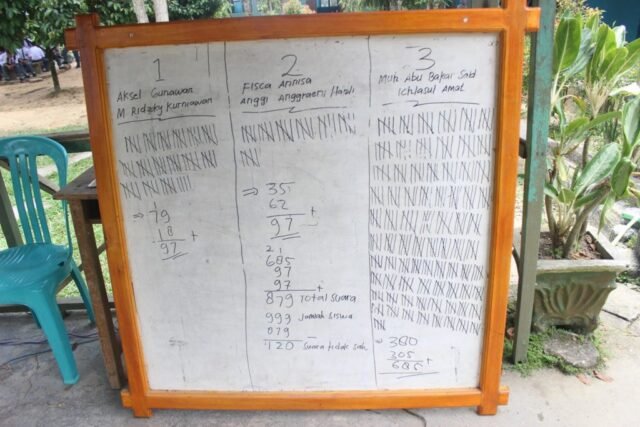 1
Aksel Gunawan
M Ridzky Kurniawan
1
⇒ 79
18 +
97
2
Fisca Annisa
Anggi Anggraeni
⇒ 35
62 +
97
21
685
97
97 +
879 Total Suara
999 Jumlah Siswa
879 -
120 Suara tidak sah
3
Muh Abu Bakar Said
Ichlasul Amal
⇒ 380
305 +
685